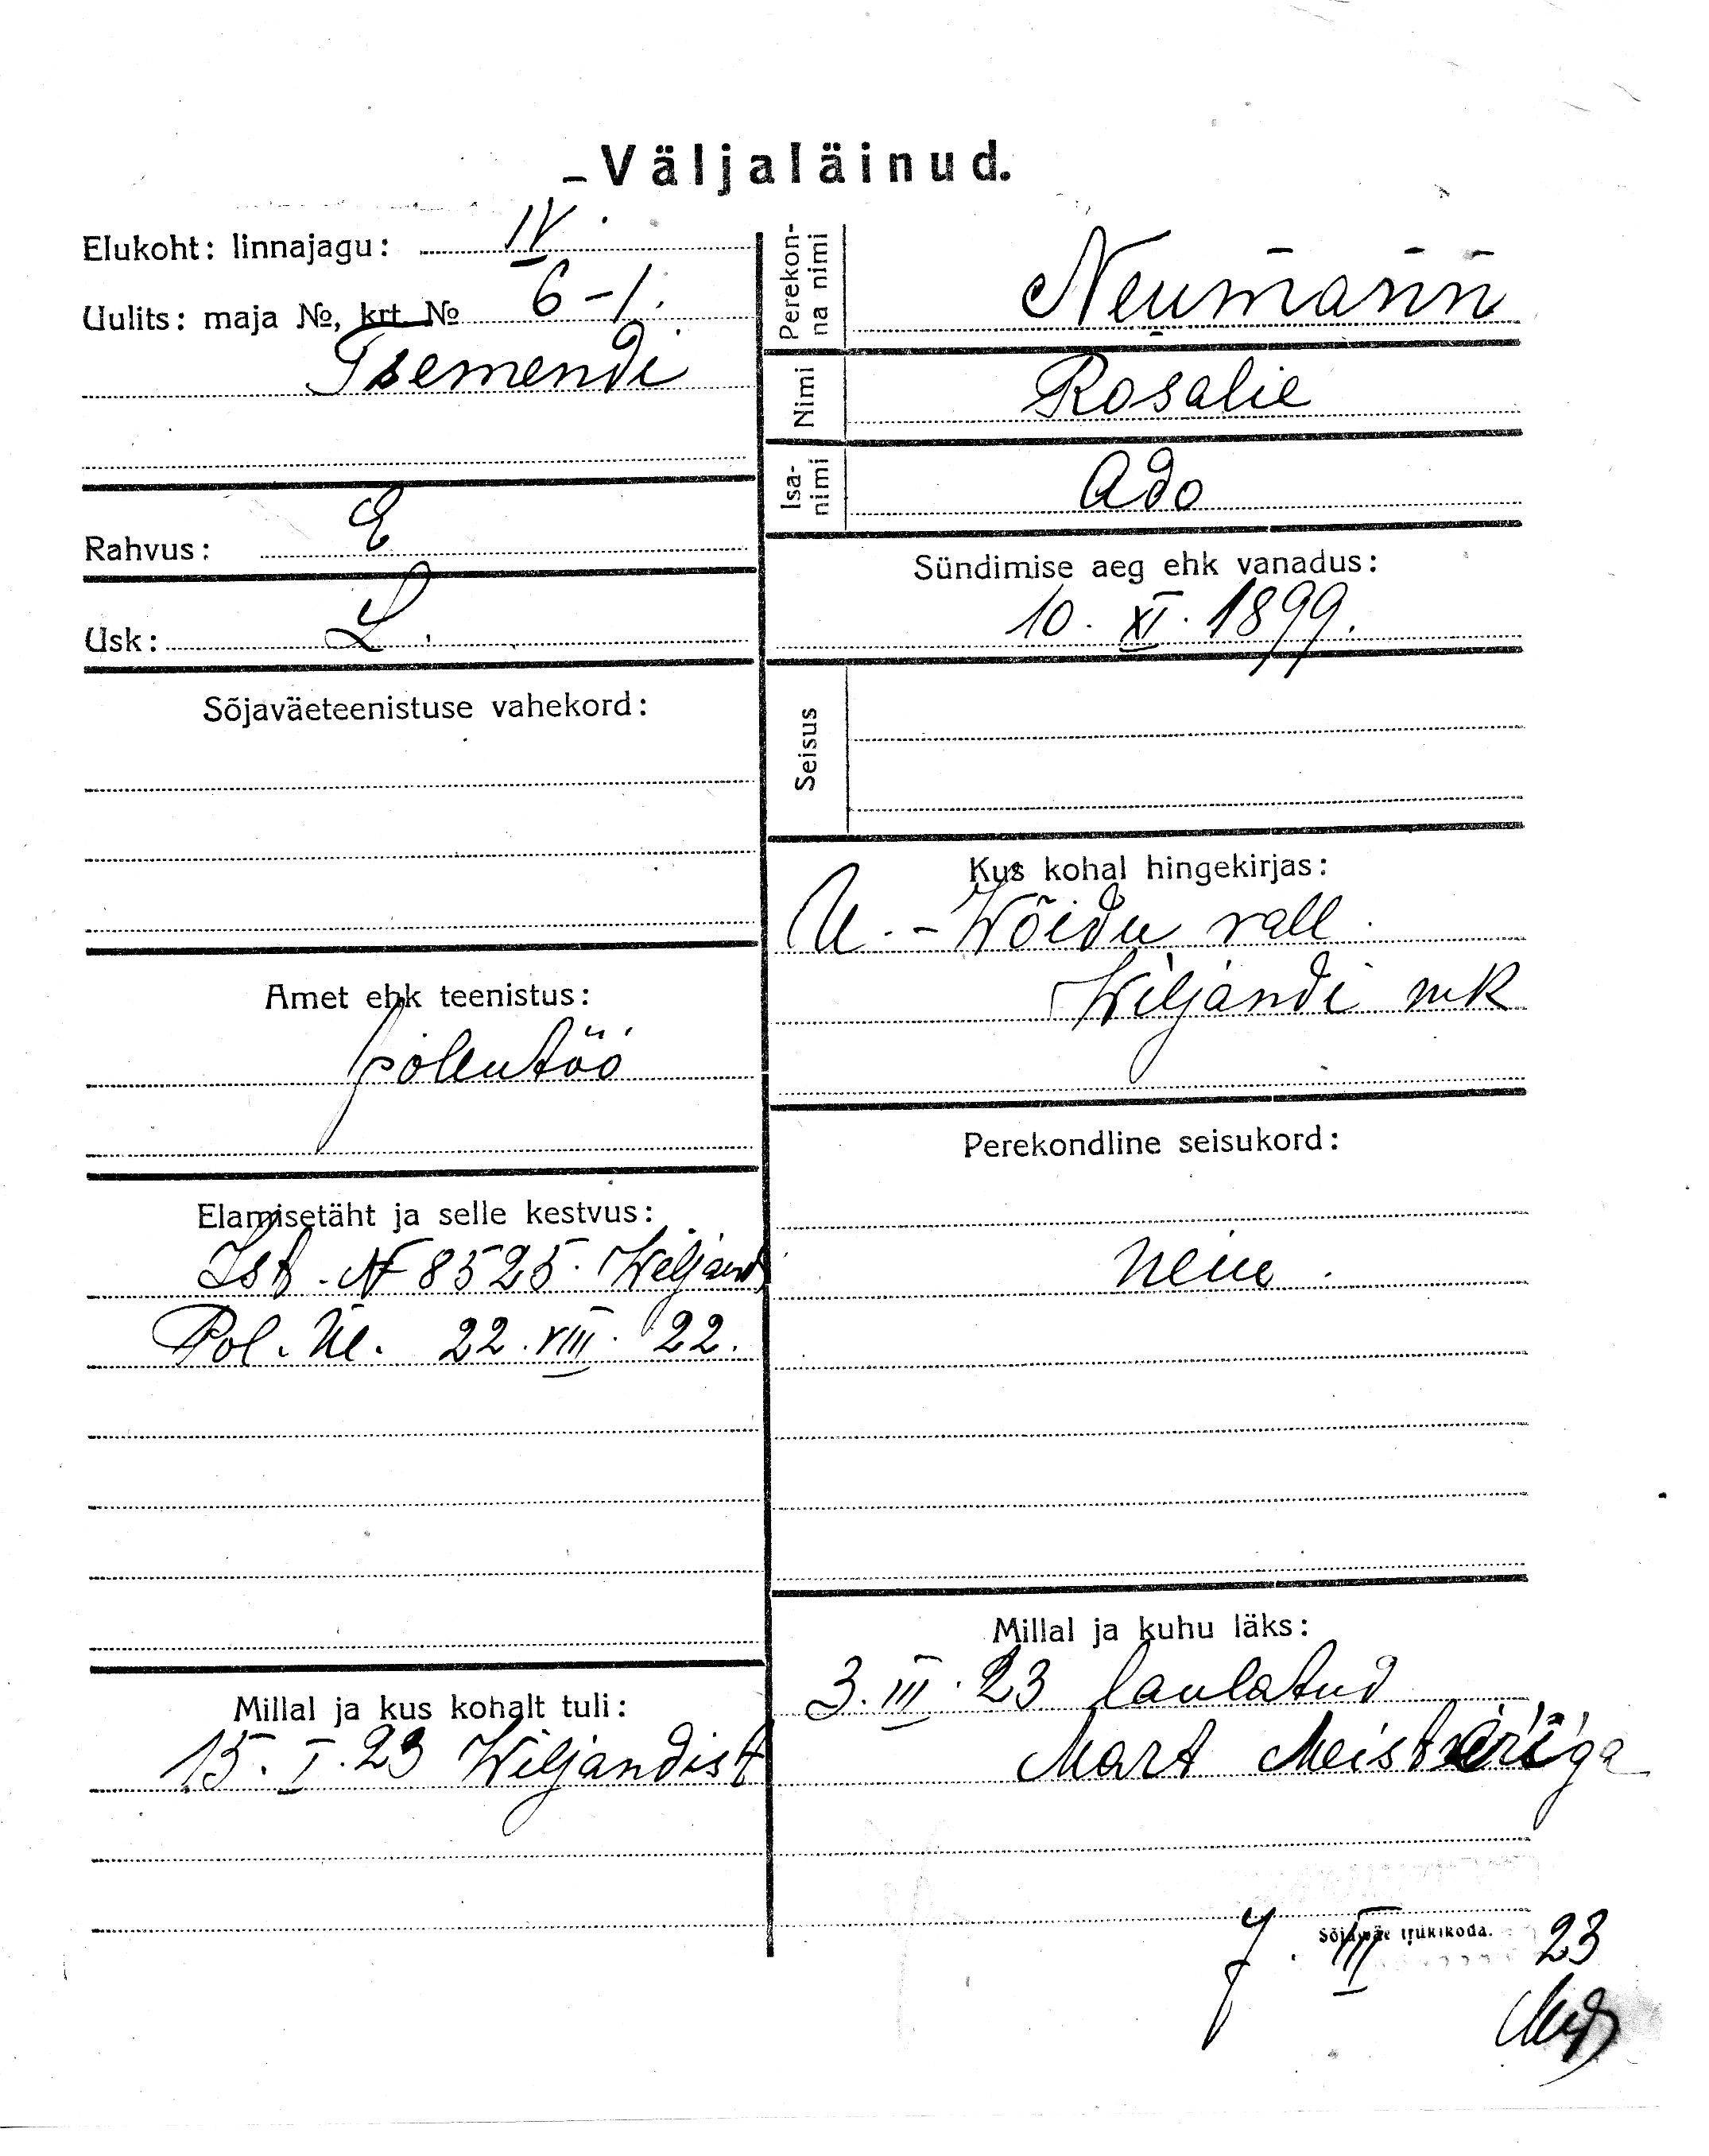 Väljaläinud.
Elukoht: linnajagu: IV.
Uulits: maja №, krt. № 6-1.
Tsemendi
Rahvus: E
Usk: L.
Sõjaväeteenistuse vahekord:
Amet ehk teenistus:
põllutöö
Elamisetäht ja selle kestvus:
Ist. № 8525. Wiljandi
Pol. Ül. 22. VIII. 22.
Millal ja kus kohalt tuli:
15. I. 23 Wiljandist
Perekonna nimi
Neumann
Nimi
Rosalie
Isanimi
Ado
Sündimise aeg ehk vanadus:
10. XI. 1899.
Seisus
Kus kohal hingekirjas:
U. - Wõidu vall.
Wiljandi mk
Perekondline seisukord:
neiu.
Millal ja kuhu läks:
3. III. 23 laulatud
Mart Meisteriga
Sõjawäe trükikoda.
7. III 23